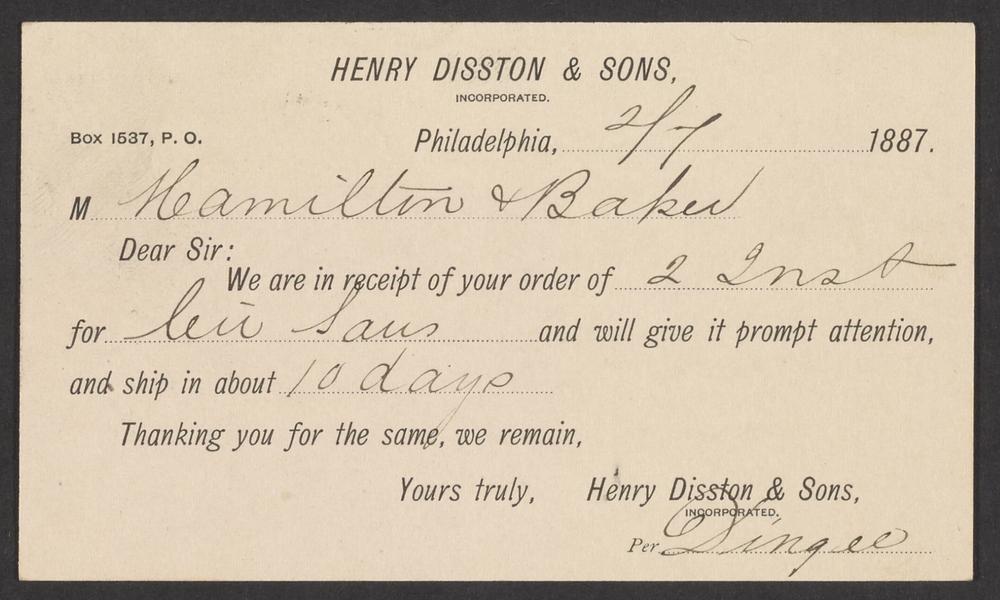 HENRY DISSTON & SONS,
INCORPORATED.
Box 1537, P. O.
Philadelphia, 2/7 1887.
M Hamilton & Baker
Dear Sir:
We are in receipt of your order of 2 Inst
for Cir Saws and will give it prompt attention,
and ship in about 10 days
Thanking you for the same, we remain,
Yours truly, Henry Disston & Sons,
INCORPORATED.
Per Dingee